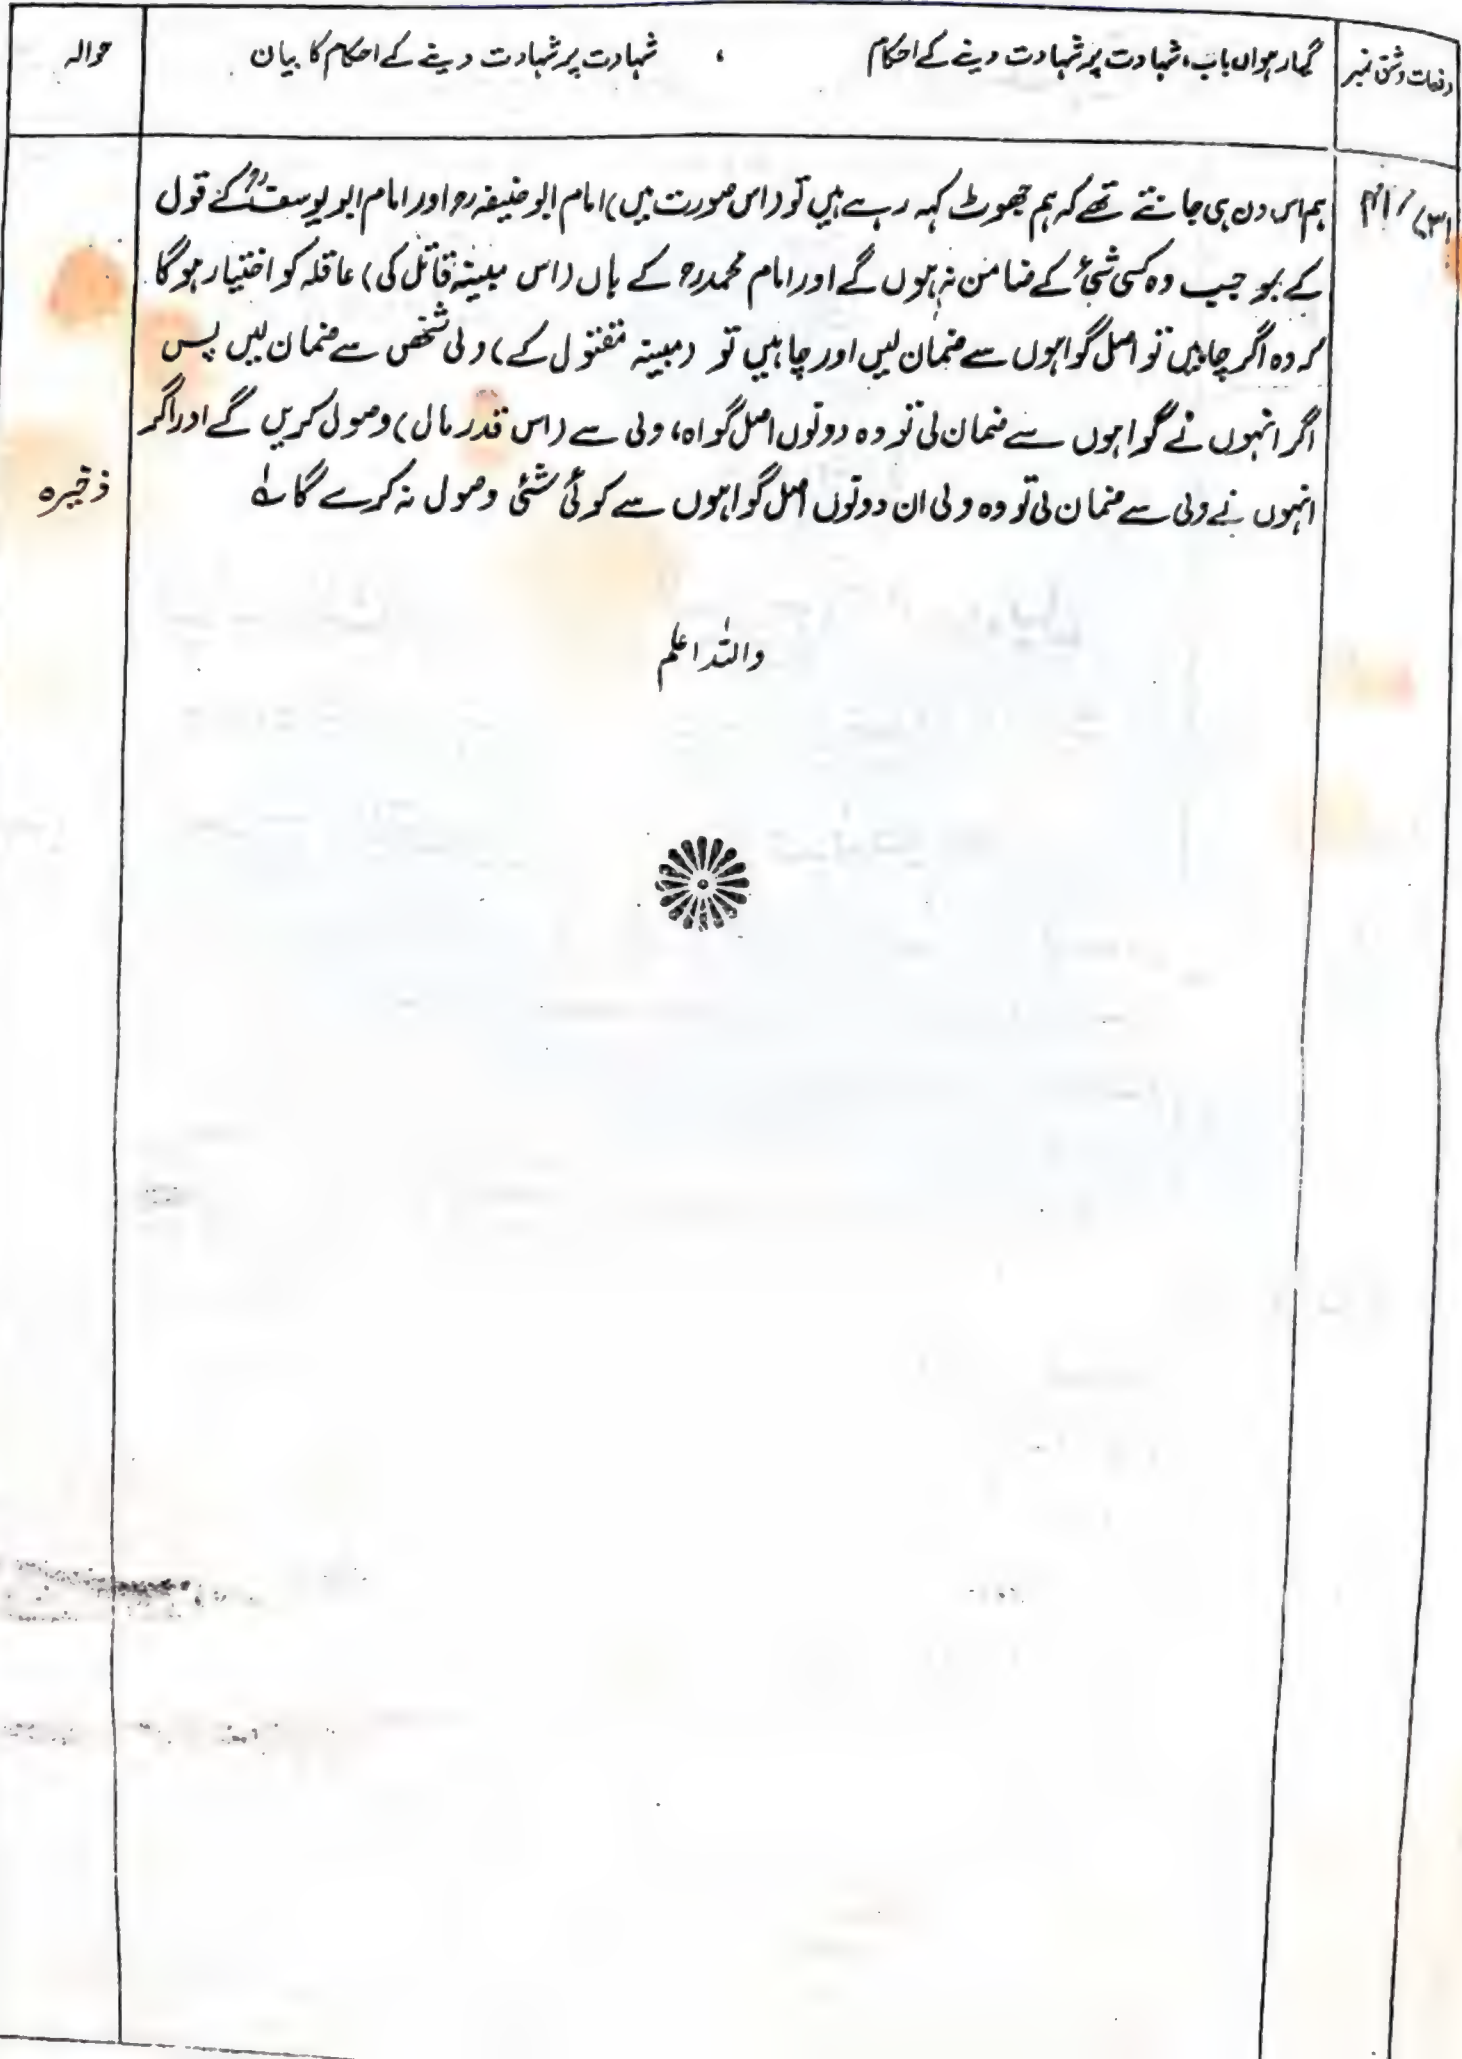 دفعات و شق نمبر
گیارہواں باب، شہادت پر شہادت دینے کے احکام ، شہادت پر شہادت دینے کے احکام کا بیان
حوالہ
ہم اس دن ہی جانتے تھے کہ ہم جھوٹ کہہ رہے ہیں تو (اس صورت میں) امام ابو حنیفہ رح اور امام ابو یوسف رح کے قول
کے بموجب وہ کسی شئ کے ضامن نہ ہوں گے اور امام محمد رح کے ہاں (اس مبینہ قاتل کی) عاقلہ کو اختیار ہوگا
کہ وہ اگر چاہیں تو اصل گواہوں سے ضمان لیں اور چاہیں تو (مبینہ مقتول کے) ولی شخص سے ضمان لیں پس
اگر انہوں نے گواہوں سے ضمان لی تو وہ دونوں اصل گواہ، ولی سے (اس قدر مال) وصول کریں گے اور اگر
انہوں نے ولی سے ضمان لی تو وہ ولی ان دونوں اصل گواہوں سے کوئی شئی وصول نہ کرے گا
ذخیرہ
واللہ اعلم